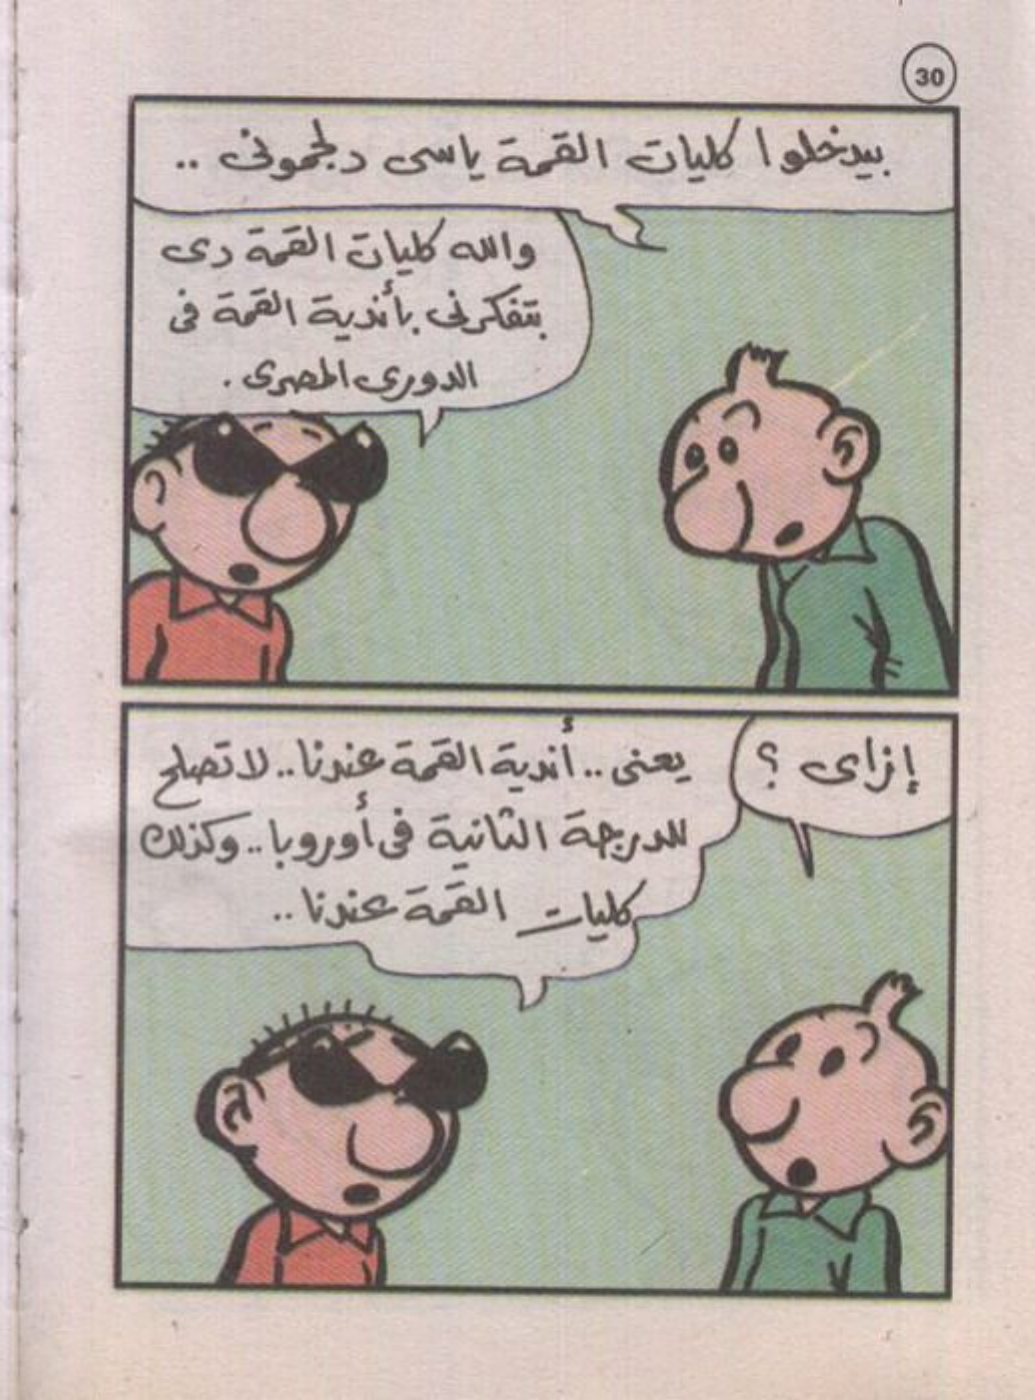 30
بيدخلوا كليات القمة ياسى دلجمونى ..
والله كليات القمة دى
بتفكرنى بأندية القمة فى
الدورى المصرى .
إزاى ؟
يعنى .. أندية القمة عندنا .. لا تصلح
للدرجة الثانية فى أوروبا .. وكذلك
كليات القمة عندنا ..